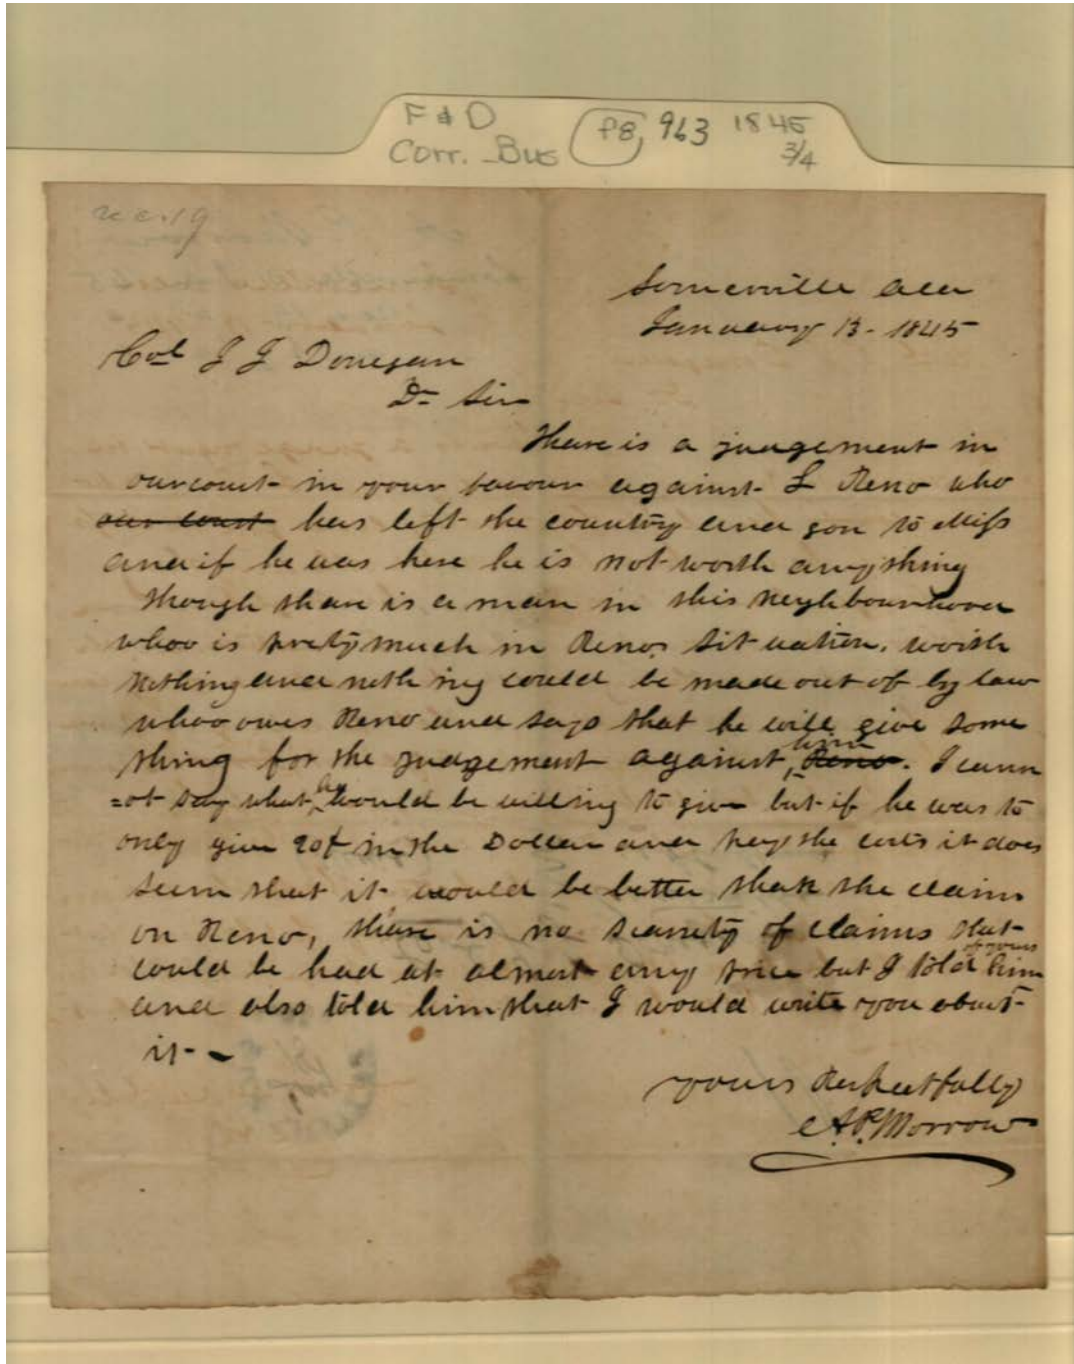 F & D
Corr. Bus P8, 963 1845
3/4
Somerville Ala
January 13 - 1845
Col J J Donegan
Dr Sir
Thare is a judgement in
our court in your favour against L Reno who
our court has left the country and gon to Miss
and if he was here he is not worth any thing
though thare is a man in this neighbourhood
whoo is prety much in Renos situation. worth
nothing and nothing could be made out of by law
whoo owes Reno and says that he will give some
thing for the judgement against him Reno. I cann
=ot say what he would be willing to give but if he was to
only give 20¢ in the Dollar and pay the costs it does
seem that it would be better than the claim
on Reno, thare is no scarsity of claims that
could be had at almost any price but I told him of yours
and also told him that I would write you about
it -
yours Respectfully
A. P. Morrow